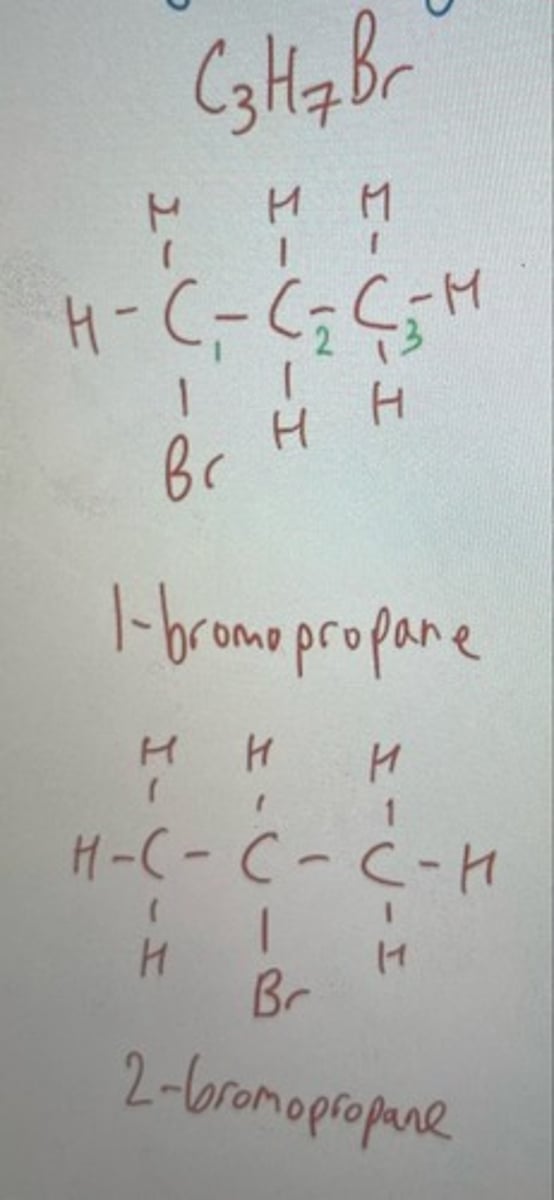 C₃H₇Br
H H H
H-C-C-C-H
1 2 3
Br H H
1-bromopropane
H H H
H-C-C-C-H
H Br H
2-bromopropane